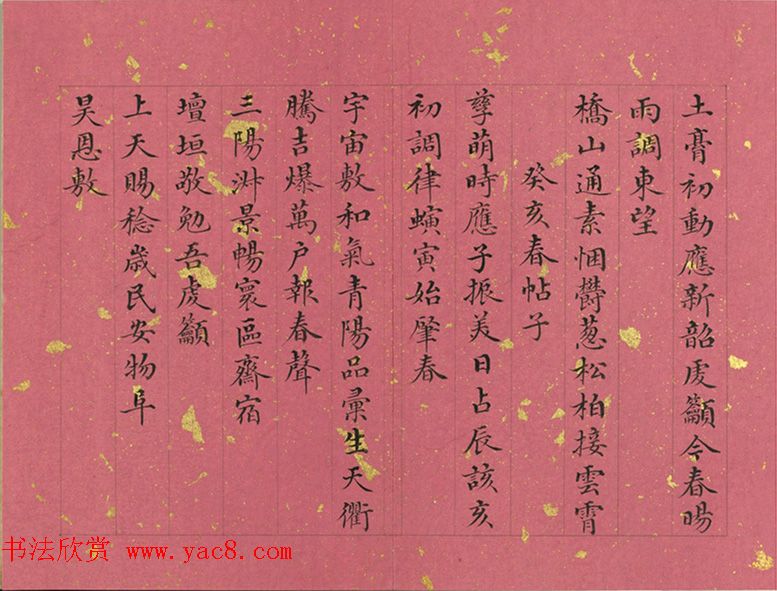 土膏初動應新韶虔籲今春暘
雨調東望
橋山通素悃欝蔥松柏接雲霄
癸亥春帖子
孳萌時應子振美日占辰該亥
初調律螾寅始肇春
宇宙敷和氣青陽品彙生天衢
騰吉爆萬户報春聲
三陽淑景暢寰區齋宿
壇垣敬勉吾虔籲
上天賜稔歲民安物阜
昊恩敷
书法欣赏 www.yac8.com